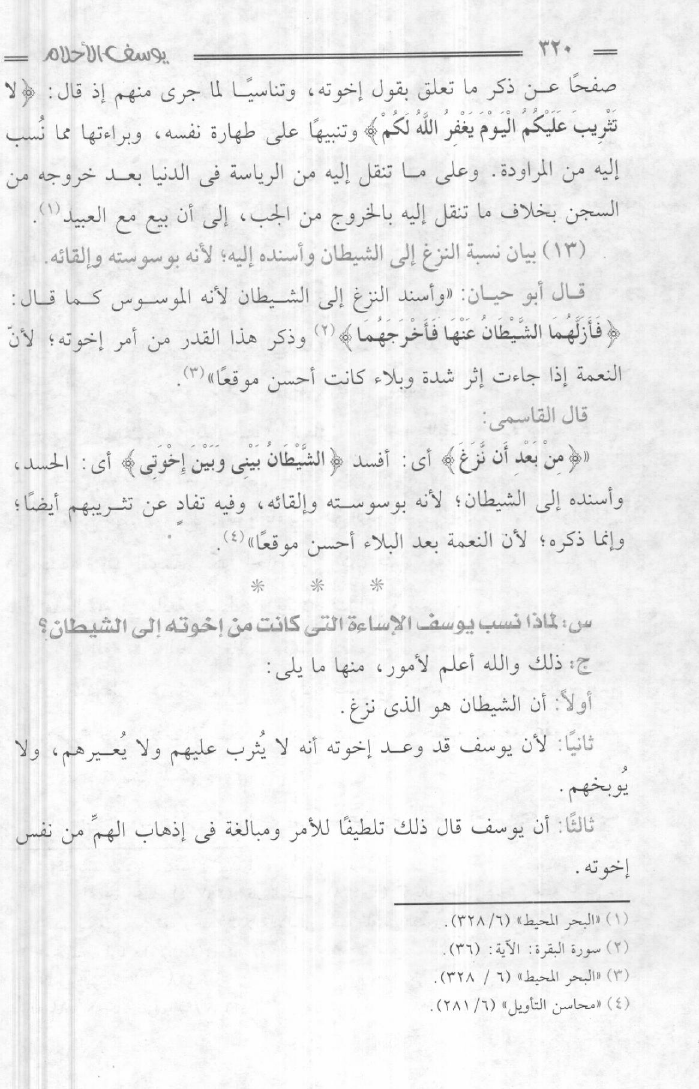 ٣٢٠ يوسف الأحلام
صفحًا عـن ذكر ما تعلق بقول إخوته، وتناسيًـا لما جرى منهم إذ قال: ﴿لا
تَثْرِيبَ عَلَيْكُمُ الْيَوْمَ يَغْفِرُ اللَّهُ لَكُمْ﴾ وتنبيهًا على طهارة نفسه، وبراءتها مما نُسب
إليه من المراودة. وعلى مـا تنقل إليه من الرياسة فى الدنيا بعـد خروجه من
السجن بخلاف ما تنقل إليه بالخروج من الجب، إلى أن بيع مع العبيد(١).
(١٣) بيان نسبة النزغ إلى الشيطان وأسنده إليه؛ لأنه بوسوسته وإلقائه.
قـال أبو حيـان: «وأسند النزغ إلى الشـيطان لأنه الموسـوس كـما قـال:
﴿فَأَزَلَّهُمَا الشَّيْطَانُ عَنْهَا فَأَخْرَجَهُمَا﴾(٢) وذكر هذا القدر من أمر إخوته؛ لأنّ
النعمة إذا جاءت إثر شدة وبلاء كانت أحسن موقعًا»(٣).
قال القاسمى:
«﴿مِنْ بَعْدِ أَن نَّزَغَ﴾ أى: أفسد ﴿الشَّيْطَانُ بَيْنِى وَبَيْنَ إِخْوَتِى﴾ أى: الحسد،
وأسنده إلى الشيطان؛ لأنه بوسوسـته وإلقائه، وفيه تفادٍ عن تثـريبهم أيضًا؛
وإنما ذكره؛ لأن النعمة بعد البلاء أحسن موقعًا»(٤).
* * *
س: لماذا نسب يوسف الإساءة التى كانت من إخوته إلى الشيطان؟
ج: ذلك والله أعلم لأمور، منها ما يلى:
أولاً: أن الشيطان هو الذى نزغ.
ثانيًا: لأن يوسف قد وعـد إخوته أنه لا يُثرب عليهم ولا يُعـيرهم، ولا
يُوبخهم.
ثالثًا: أن يوسف قال ذلك تلطيفًا للأمر ومبالغة فى إذهاب الهمِّ من نفس
إخوته.
(١) «البحر المحيط» (٣٢٨/٦).
(٢) سورة البقرة: الآية: (٣٦).
(٣) «البحر المحيط» (٦ / ٣٢٨).
(٤) «محاسن التأويل» (٢٨١/٦).